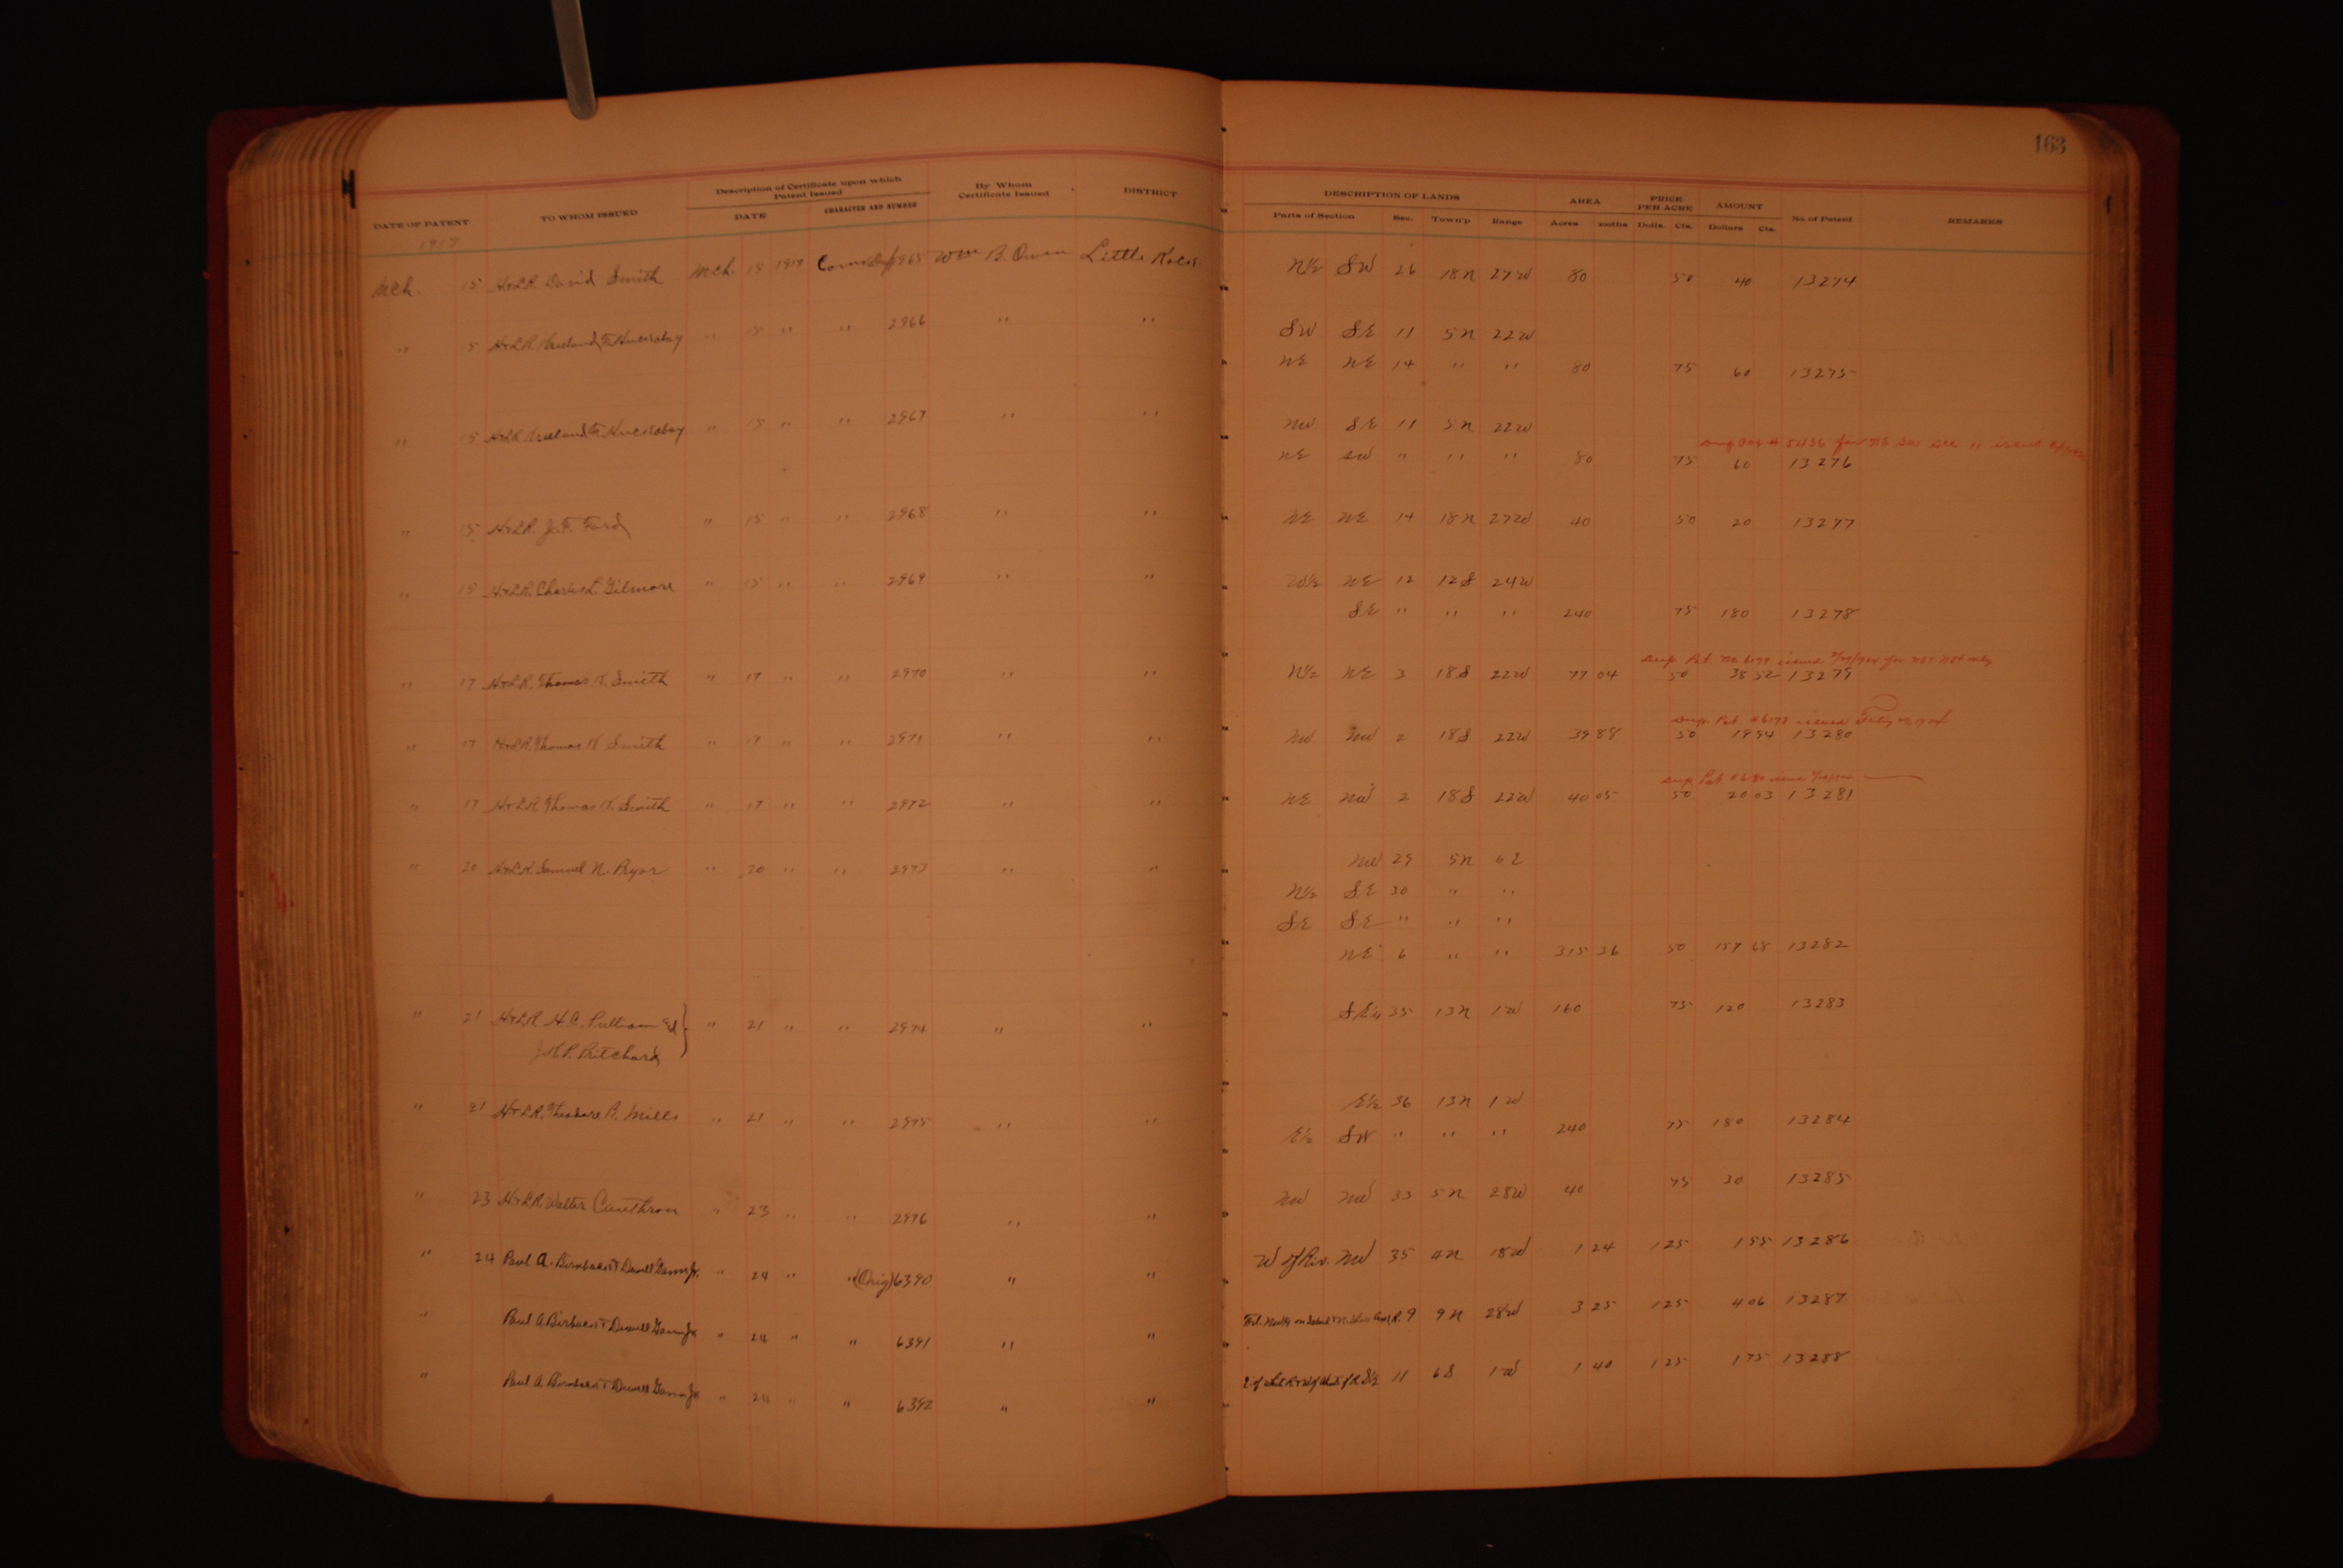 163
DATE OF PATENT TO WHOM ISSUED Description of Certificate upon which Patent Issued DATE CHARACTER AND NUMBER By Whom Certificate Issued DISTRICT DESCRIPTION OF LANDS Parts of Section Sec. Town'p Range AREA Acres PRICE PER ACRE Dolls. Cts. AMOUNT Dollars Cts. No. of Patent REMARKS
1917
Mch. 15 H&LR. David Smith Mch. 15 1917 2965 Wm B. Owen Little Rock N½ SW 26 18N 27W 80 50 40 13274
" 15 H&LR " 15 " " 2966 " " SW SE 11 5N 22W
NE NE 14 " " 80 75 60 13275
" 15 H&LR " 15 " " 2967 " " NW SE 11 5N 22W
NE SW " " " 80 75 60 13276
" 15 H&LR. J.F. Ford " 15 " " 2968 " " NE NE 14 18N 27W 40 50 20 13277
" 15 H&LR. Charles L. Gilmore " 15 " " 2969 " " W½ NE 12 12S 24W
SE " " " 240 75 180 13278
" 17 H&LR. Thomas K. Smith " 17 " " 2970 " " N½ NE 3 18S 22W 77 04 50 38 52 13279
Dup. Pat. #6178 issued
" 17 H&LR. Thomas K. Smith " 17 " " 2971 " " NW NW 2 18S 22W 39 88 50 19 94 13280
" 17 H&LR. Thomas K. Smith " 17 " " 2972 " " NE NW 2 18S 22W 40 05 50 20 03 13281
" 20 H&LR. Samuel N. Pryor " 20 " " 2973 " " NW 29 5N 6E
N½ SE 30 " "
SE SE " " "
NE 6 " " 315 36 50 157 68 13282
" 21 H&LR. H.C. Pulliam & " 21 " " 2974 " " SE¼ 35 13N 1W 160 75 120 13283
J.K.P. Pritchard
" 21 H&LR. Theodore A. Mills " 21 " " 2975 " " E½ 36 13N 1W
E½ SW " " " 240 75 180 13284
" 23 H&LR Walter Cauthron " 23 " " 2976 " " NW NW 33 5N 28W 40 75 30 13285
" 24 Paul A. & Dewell Gann Jr. " 24 " " (Orig) 6390 " " W of Riv. NW 35 4N 18W 1 24 125 1 55 13286
" Paul A. & Dewell Gann Jr " 24 " " 6391 " " 9 9N 28W 3 25 125 4 06 13287
" Paul A. & Dewell Gann Jr " 24 " " 6392 " " 11 6S 1W 1 40 125 1 75 13288